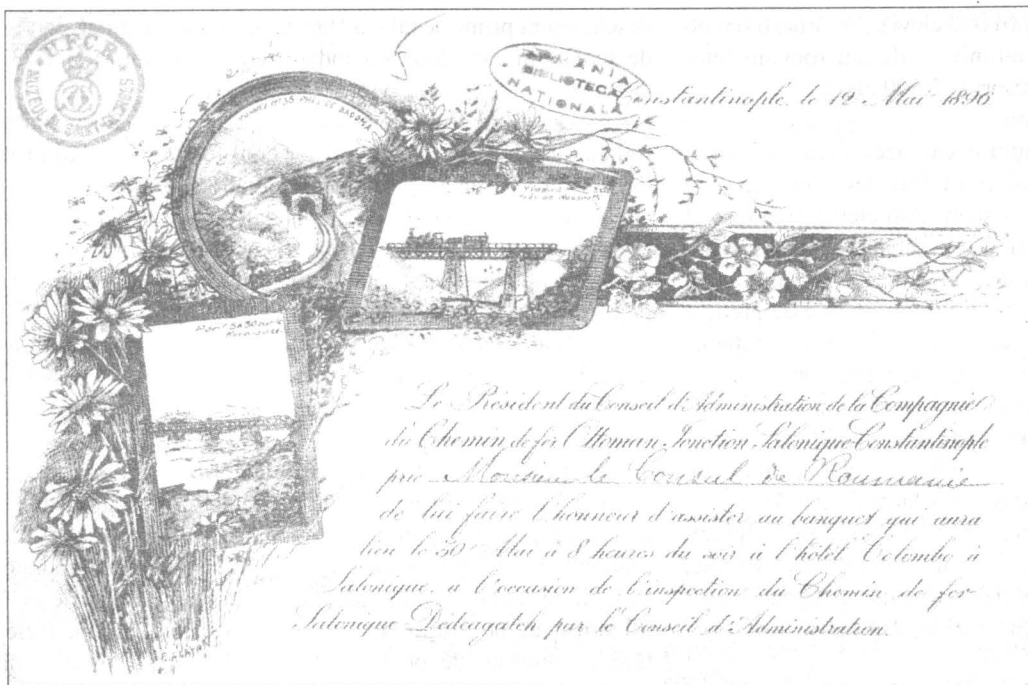 U.F.C.R.
BIBLIOTECA
NATIONALA
Constantinople, le 12 Mai 1896
Le Président du Conseil d'Administration de la Compagnie
du Chemin de fer Ottoman Jonction Salonique Constantinople
prie Monsieur le Consul de Roumanie
de lui faire l'honneur d'assister au banquet qui aura
lieu le 30 Mai à 8 heures du soir à l'hôtel Colombo à
Salonique, a l'occasion de l'inspection du Chemin de fer
Salonique Dédéagatch par le Conseil d'Administration.